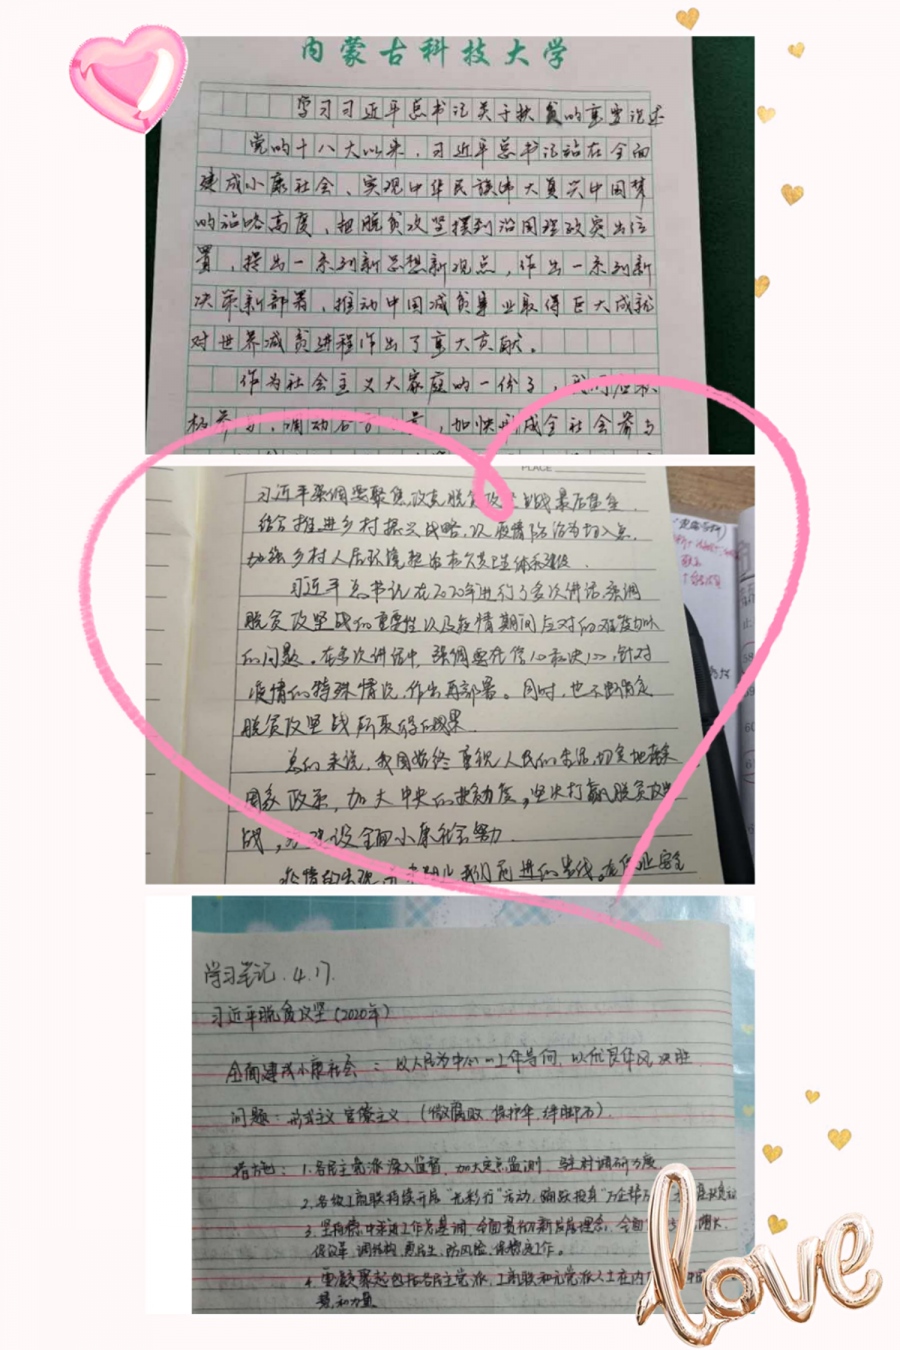 内蒙古科技大学
学习习近平总书记关于扶贫的重要论述
党的十八大以来，习近平总书记站在全面
建成小康社会、实现中华民族伟大复兴中国梦
的战略高度，把脱贫攻坚摆到治国理政突出位
置，提出一系列新思想新观点，作出一系列新
决策新部署，推动中国减贫事业取得巨大成就
对世界减贫进程作出了重大贡献。
作为社会主义大家庭的一份子，我们应积
极参与，调动各方力量，加快形成全社会参与
PLACE
习近平强调要聚焦攻克脱贫攻坚战最后堡垒，
结合推进乡村振兴战略，以疫情防治为切入点，
加强乡村人居环境整治和公共卫生体系建设．
习近平总书记在2020年进行了多次讲话，强调
脱贫攻坚战的重要性以及疫情期间应对的
的问题。在多次讲话中，强调要坚定信心和决心，针对
疫情的特殊情况，作出再部署。同时，也不断肯定
脱贫攻坚战所取得的成果．
总的来说，我国始终重视人民的生活，切实地落实
国家政策，加大中央的 度，坚决打赢脱贫攻坚
战，为建设全面小康社会努力．
疫情的出现 我们前进的步伐。在
学习笔记．4.17．
习近平脱贫攻坚（2020年）
全面建成小康社会：以人民为中心的工作导向，以优良作风决胜
问题：形式主义 官僚主义 （微腐败，保护伞，绊脚石）．
措施：1．各民主党派深入监督，加大定点监测，驻村调研力度
2．各级工商联持续开展“光彩行”活动，踊跃投身“万企帮万
3．坚持稳中求进工作总基调，全面贯彻新发展理念，全面
促改革，调结构，惠民生，防风险，保稳定工作。
4． 包括各民主党派，工商联和无党派人士在内
和力量
love